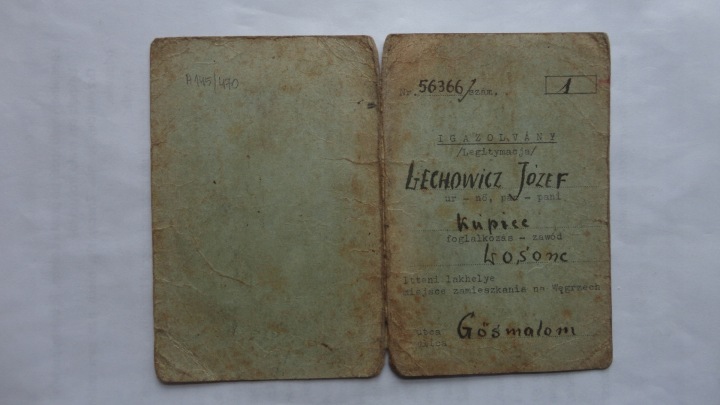 A 145/470
Nr. 56366/szám. . 1
IGAZOLVÁNY
/Legitymacja/
LECHOWICZ JÓZEF
ur - nő, pan - pani
Kupiec
foglalkozás - zawód
Łośonc
itteni lakhelye
miejsce zamieszkania na Węgrzech
Gősmalom
utca
ulica